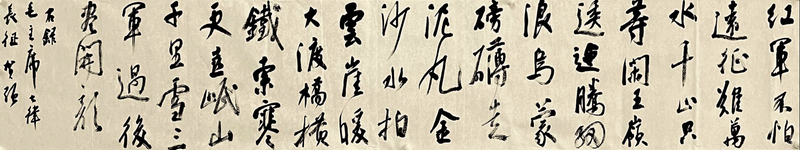 紅軍不怕
遠征難萬
水千山只
等閑五嶺
逶迤騰細
浪烏蒙
磅礴走
泥丸金
沙水拍
雲崖暖
大渡橋橫
鐵索寒
更喜岷山
千里雪三
軍過後
盡開顏
右錄
毛主席七律
長征